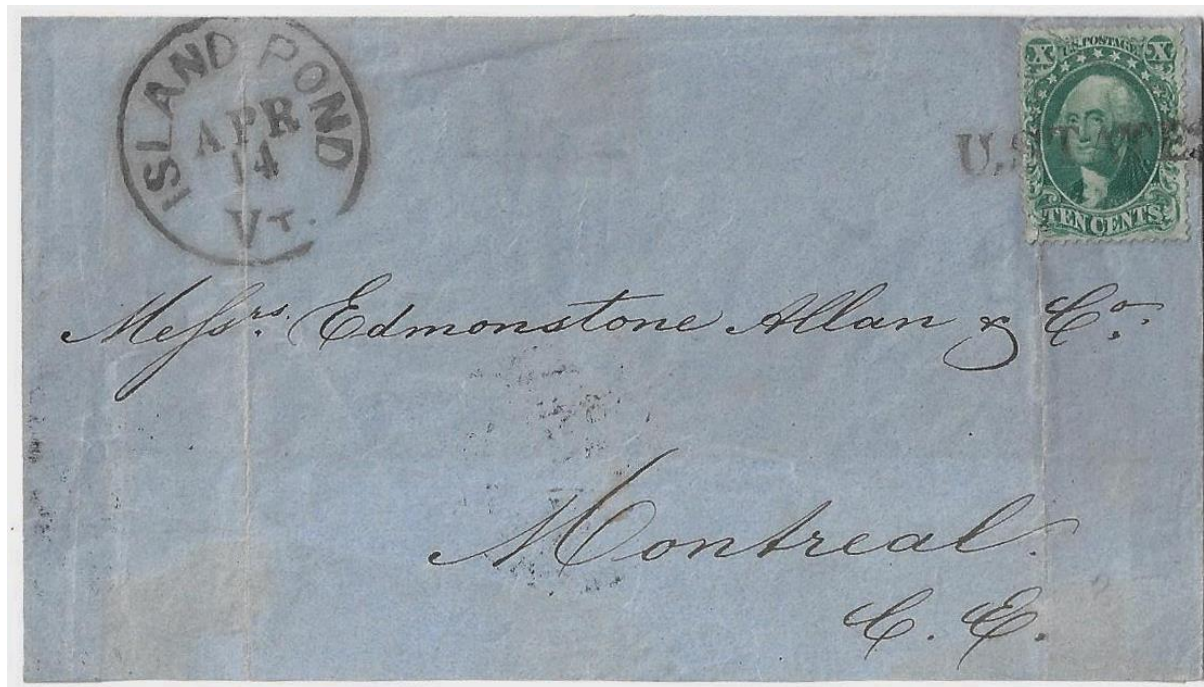 ISLAND POND
APR
14
VT.
X U.S. POSTAGE X
U.STATES
TEN CENTS
Messrs. Edmonstone Allan & Co.
Montreal.
C. E.